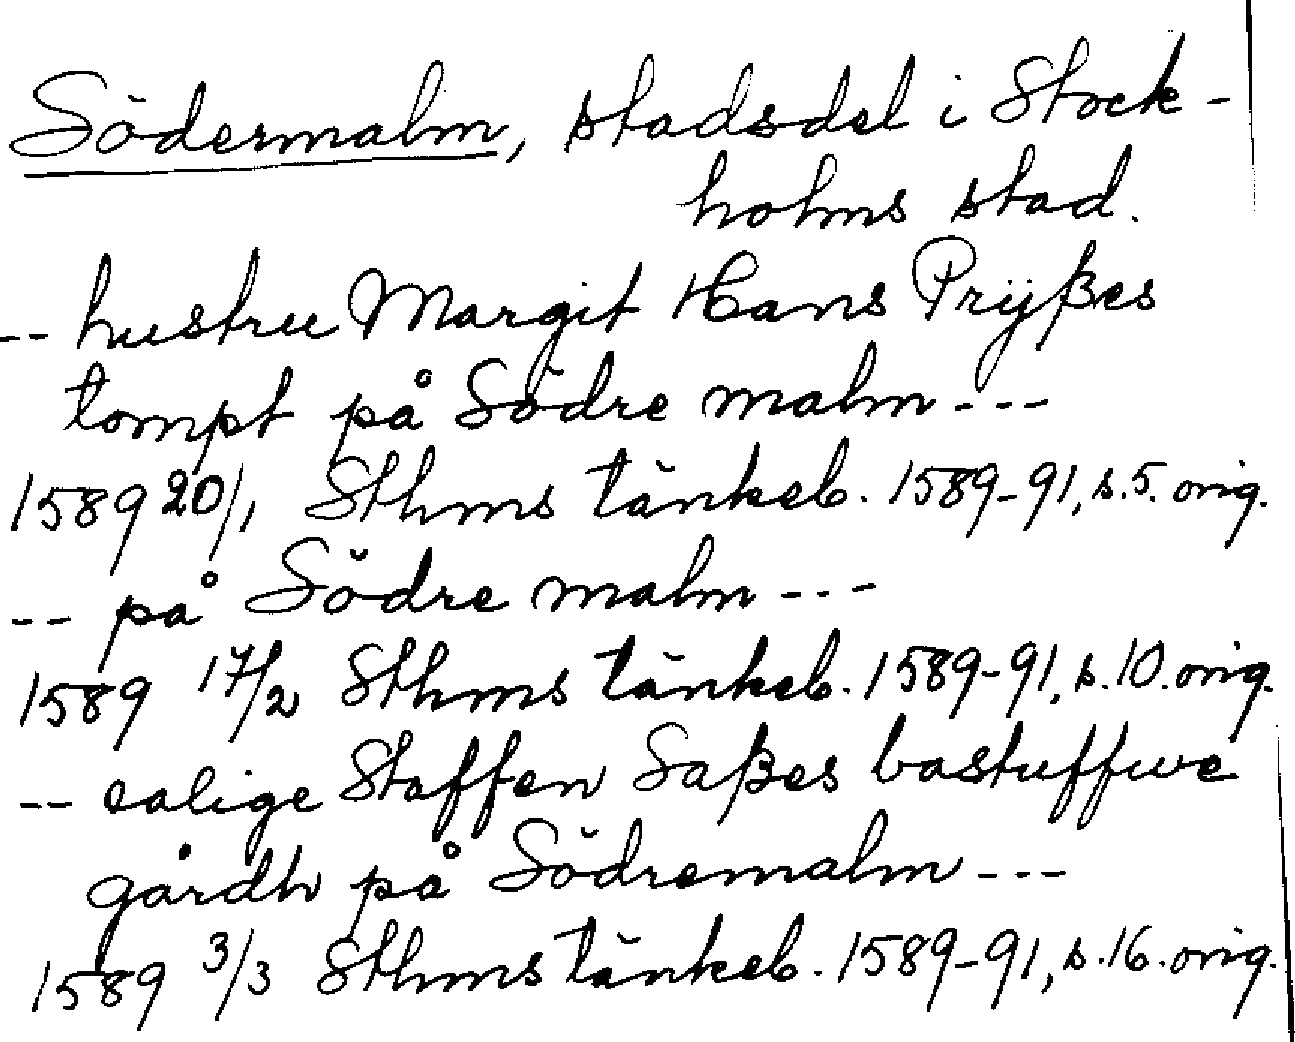 Södermalm, stadsdel i Stock-
holms stad.
-- hustru Margit Hans Prÿßes
tompt på Södre malm ---
1589 20/1 Sthms tänkeb. 1589-91, s.5. orig.
-- på Södre malm ---
1589 17/2 Sthms tänkeb. 1589-91, s.10. orig.
-- salige Staffen Saßes bastuffwe
gårdh på Södremalm ---
1589 3/3 Sthms tänkeb. 1589-91, s.16. orig.